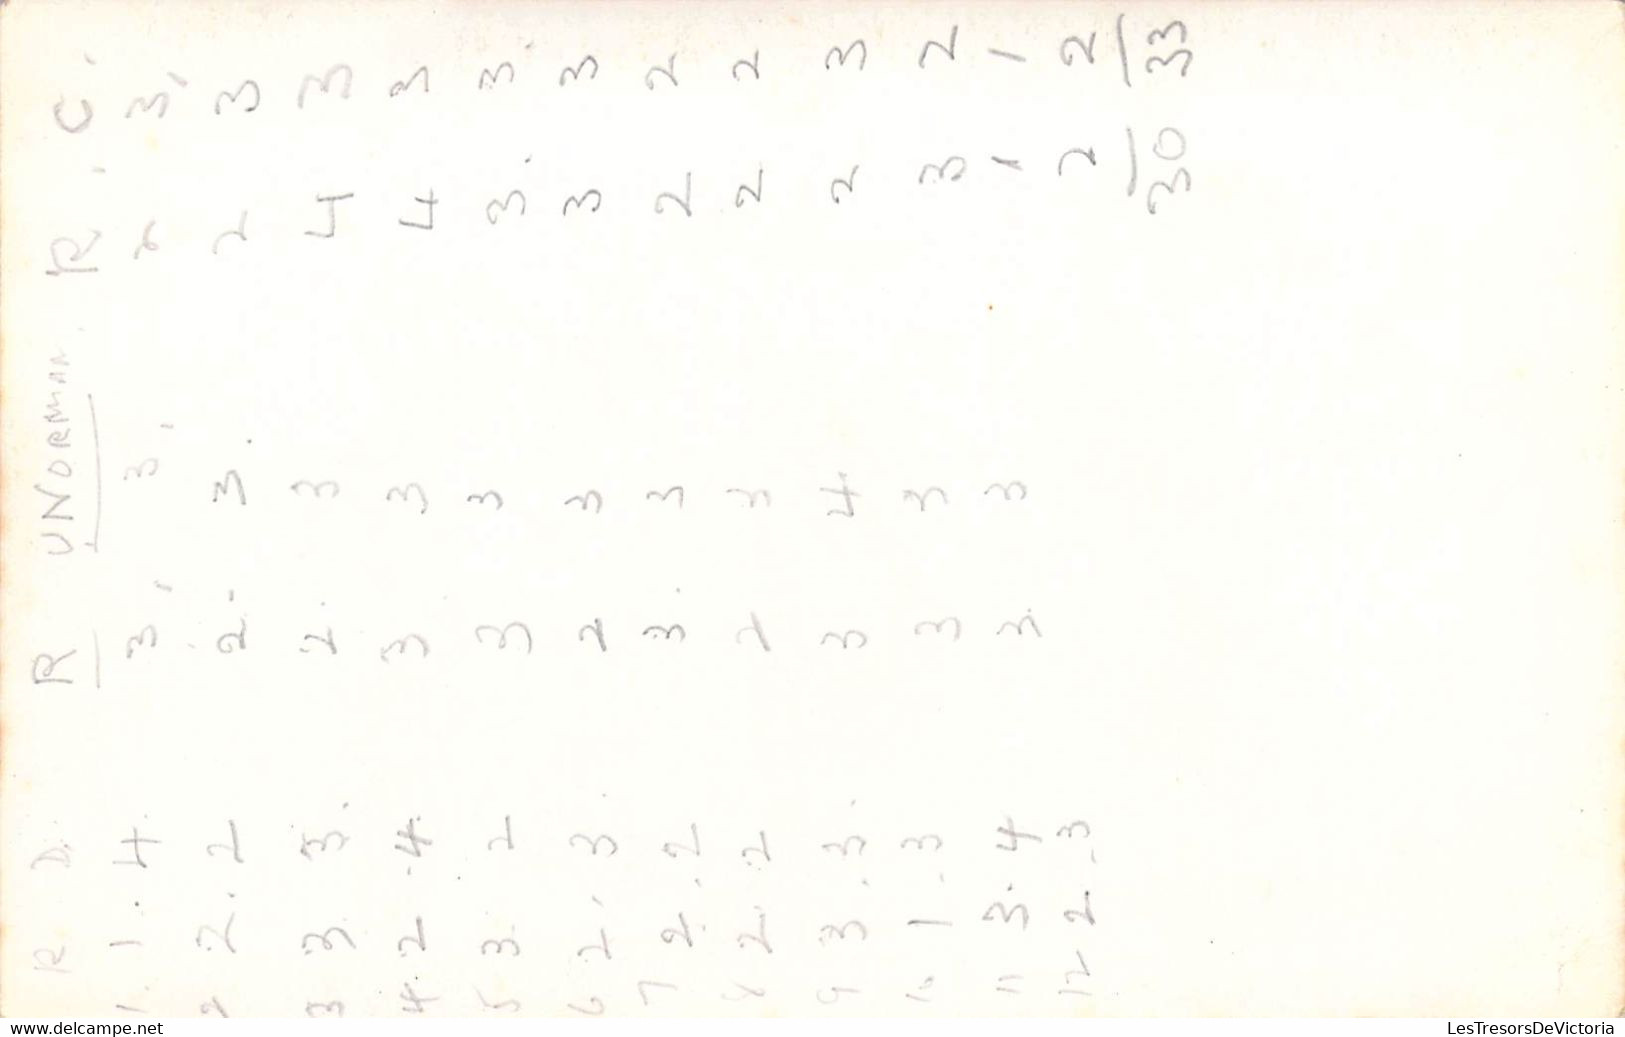 R D. R UNORMAN R. C.
1. 1.4 3 3 2 3
2 2.2 2. 3. 2 3
3 3 3. 2. 3 4 3
4 2.4 3 3 4 3
5 3. 2 3 3 3. 3
6 2. 3 2 3 3 3
7 2.2 3. 3 2 2
8 2.2 2 3 2 2
9 3.3. 3 4 2 3
10 1.3 3 3 3 2
11 3.4 3. 3 1 1
12 2.3 2 2
30 33
delcampe.net
LesTresorsDeVictoria